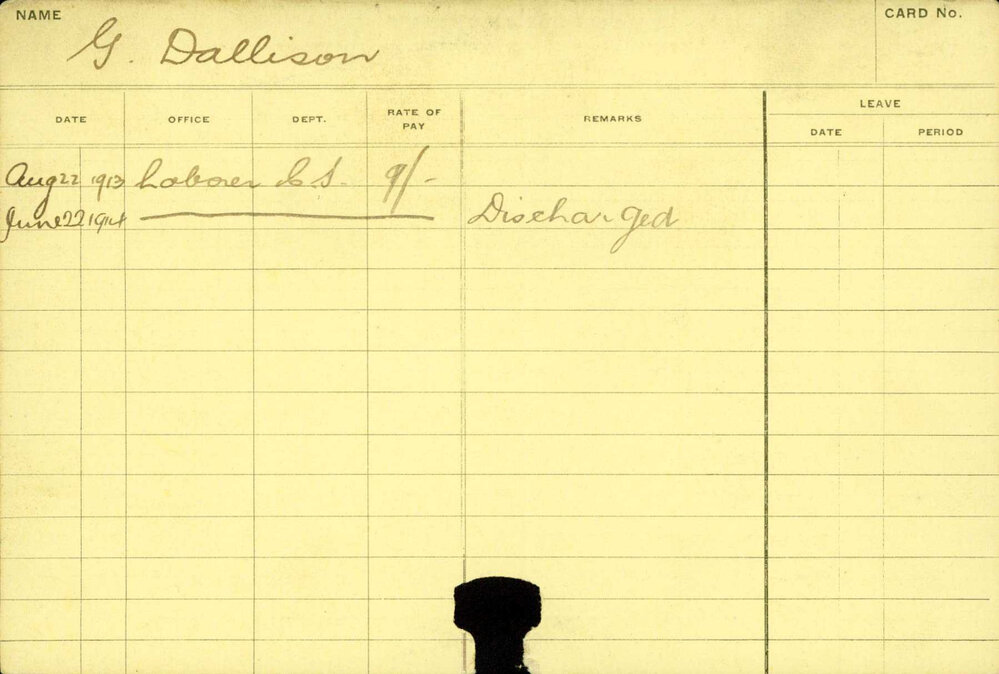 NAME
CARD No.
G. Dallison
DATE OFFICE DEPT. RATE OF PAY REMARKS LEAVE
DATE PERIOD
Aug 22 1913 Laborer 9/-
June 22 1914 Discharged